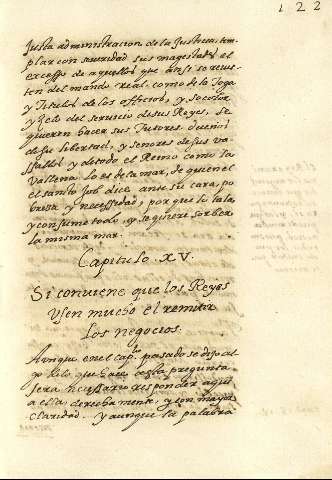 122
Justa administracion de la Justicia, tem
plar con severidad sus magestades el
excesso de aquellos que assi se revis
ten del mando real, como de la Toga
y Titulos de los officios, y so color
y Zelo del servicio de sus Reyes, se
quieren hacer sus Tutores, dueños
de su libertad, y señores de sus va
sallos y de todo el Reino como la
Vallena lo es de la mar, de quien el
el santo Job dice ante su cara, po
breza y necessidad, por que lo tala,
y consume todo, y se quiere sorber
la misma mar.
Capitulo. XV.
Si conviene que los Reyes
usen mucho el remitir
los negocios.
Aunque en el cap.lo pasado se dijo al
go de lo que hace a esta pregunta
sera necessario responder aqui
a ella, derechamente, y con mayor
claridad. y aunque la palabra